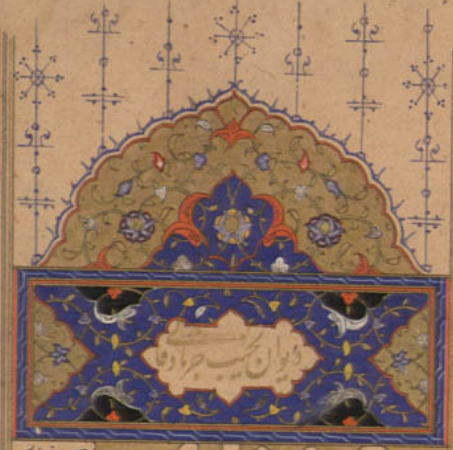 دیوان نجیب جرفادقانی